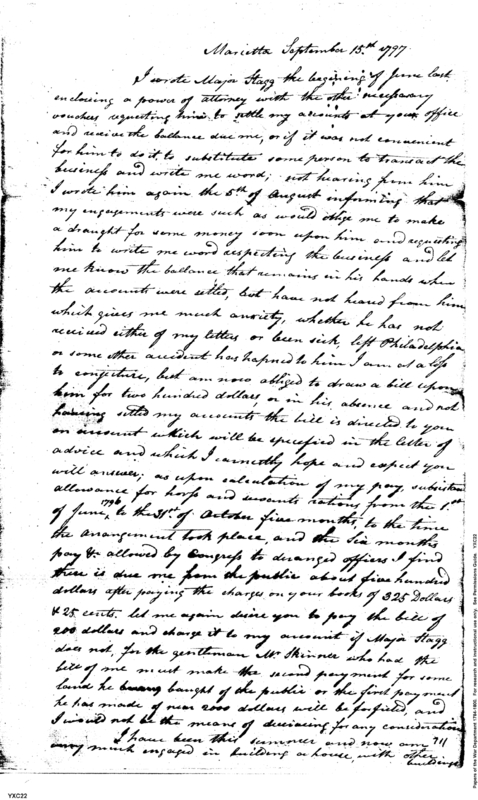 Marietta September 15th 1797
I wrote Major Stagg the begining of June last
enclosing a power of attorney with the other necessary
vouchers requesting him to settle my accounts at your office
and receive the ballance due me, or if it was not convenient
for him to do it to substitute some person to transact the
business and write me word; not hearing from him
I wrote him again the 5th of August informing that
my engagements were such as would oblige me to make
a draught for some money soon upon him and requesting
him to write me word respecting the business and let
me know the ballance that remains in his hands when
the accounts were settled, but have not heard from him
which gives me much anxiety, whether he has not
received either of my letters or been sick, left Philadelphia
or some other accident has hapned to him I am at a loss
to conjecture, but am now obliged to draw a bill upon
him for two hundred dollars, or in his absence and not
having settled my accounts the bill is directed to you
on account which will be specified in the letter of
advice and which I earnestly hope and expect you
will answer; as upon calculation of my pay, subsistence
allowance for horse and servants rations from the 1st
of June, 1796 to the 31st of October five months, to the time
the arrangement took place, and the six months
pay &c allowed by Congress to deranged officers I find
there is due me from the public about five hundred
dollars after paying the charges on your books of 325 Dollars
& 25 cents. let me again desire you to pay the bill of
200 dollars and charge it to my account if Major Stagg
does not, for the gentleman Mr Skinner who had the
bill of me must make the second payment for some
land he baught of the public or the first payment
he has made of near 2000 dollars will be forfeited, and
I would not be the means of deceiving for any consideration
I have been this summer and now am
very much engaged in building a house, with other
buildings
711
YXC22
Papers of the War Department 1784-1800. For research and instructional use only. See Permissions Guide. YXC22